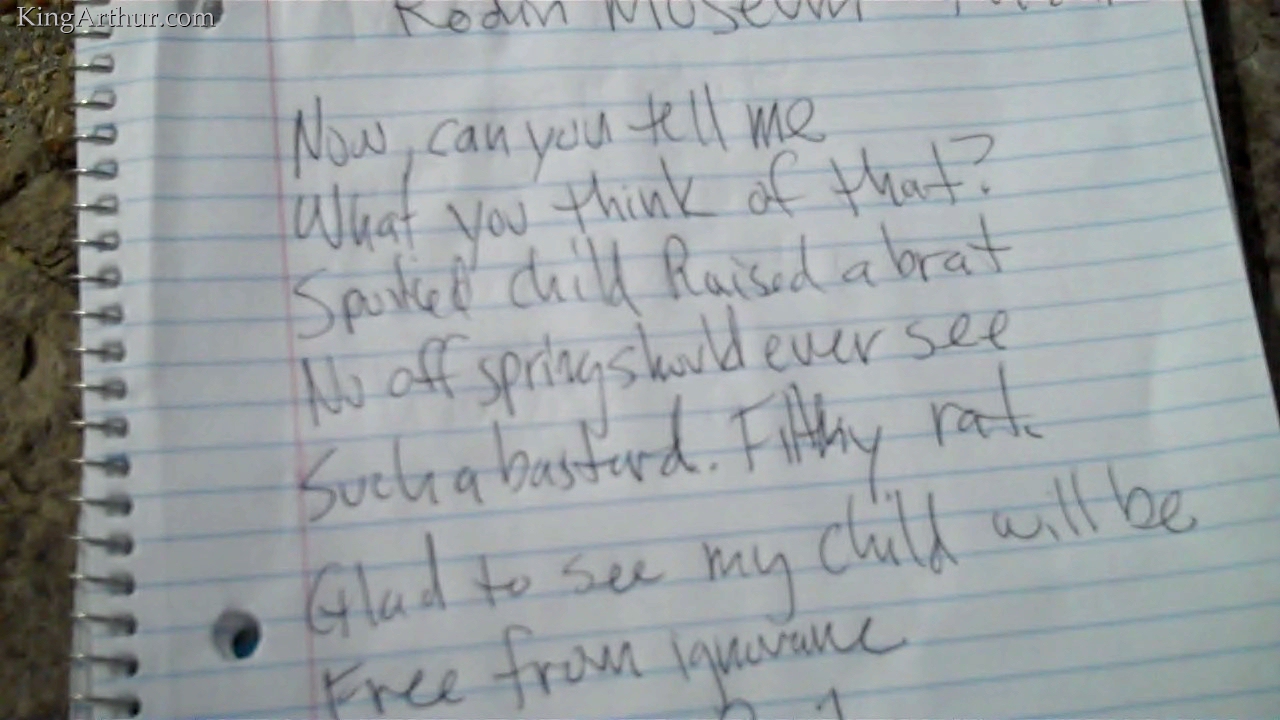 KingArthur.com
Rodin Museum
Now, can you tell me
What you think of that?
Spoiled child Raised a brat
No offspring should ever see
Such a bastard. Filthy rat.
Glad to see my child will be
Free from ignorance